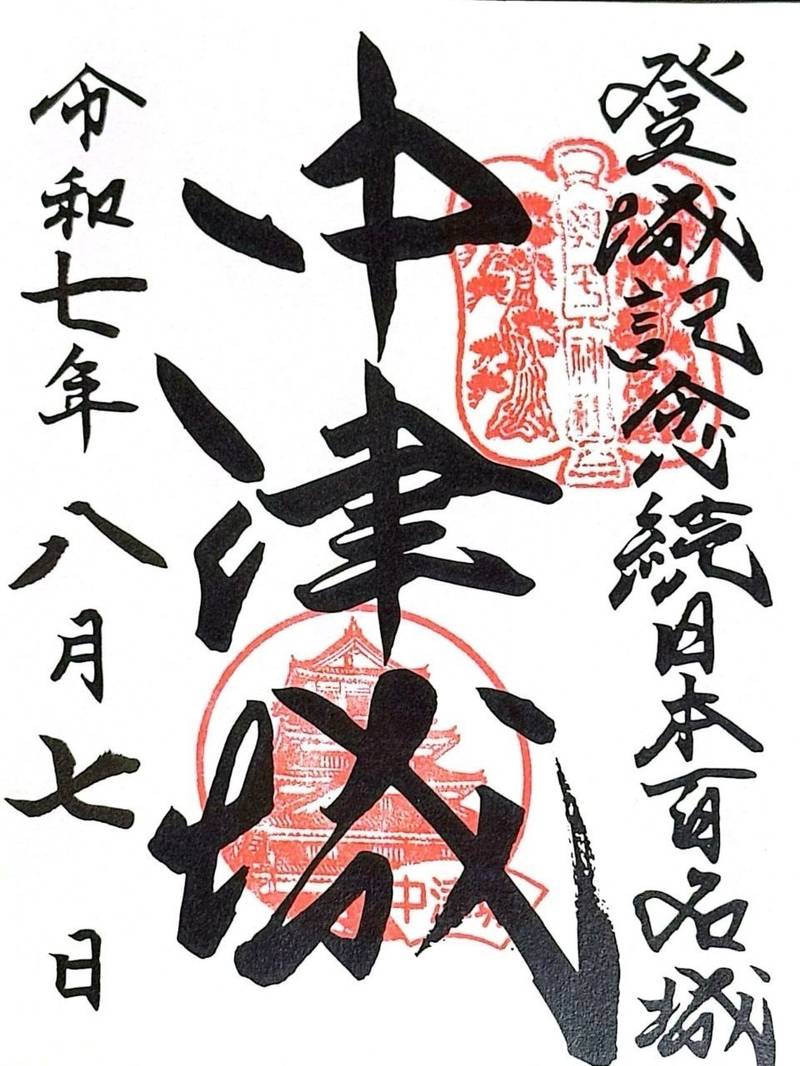 登城記念続日本百名城
中津城
令和七年八月七日
奥平神社
中津城